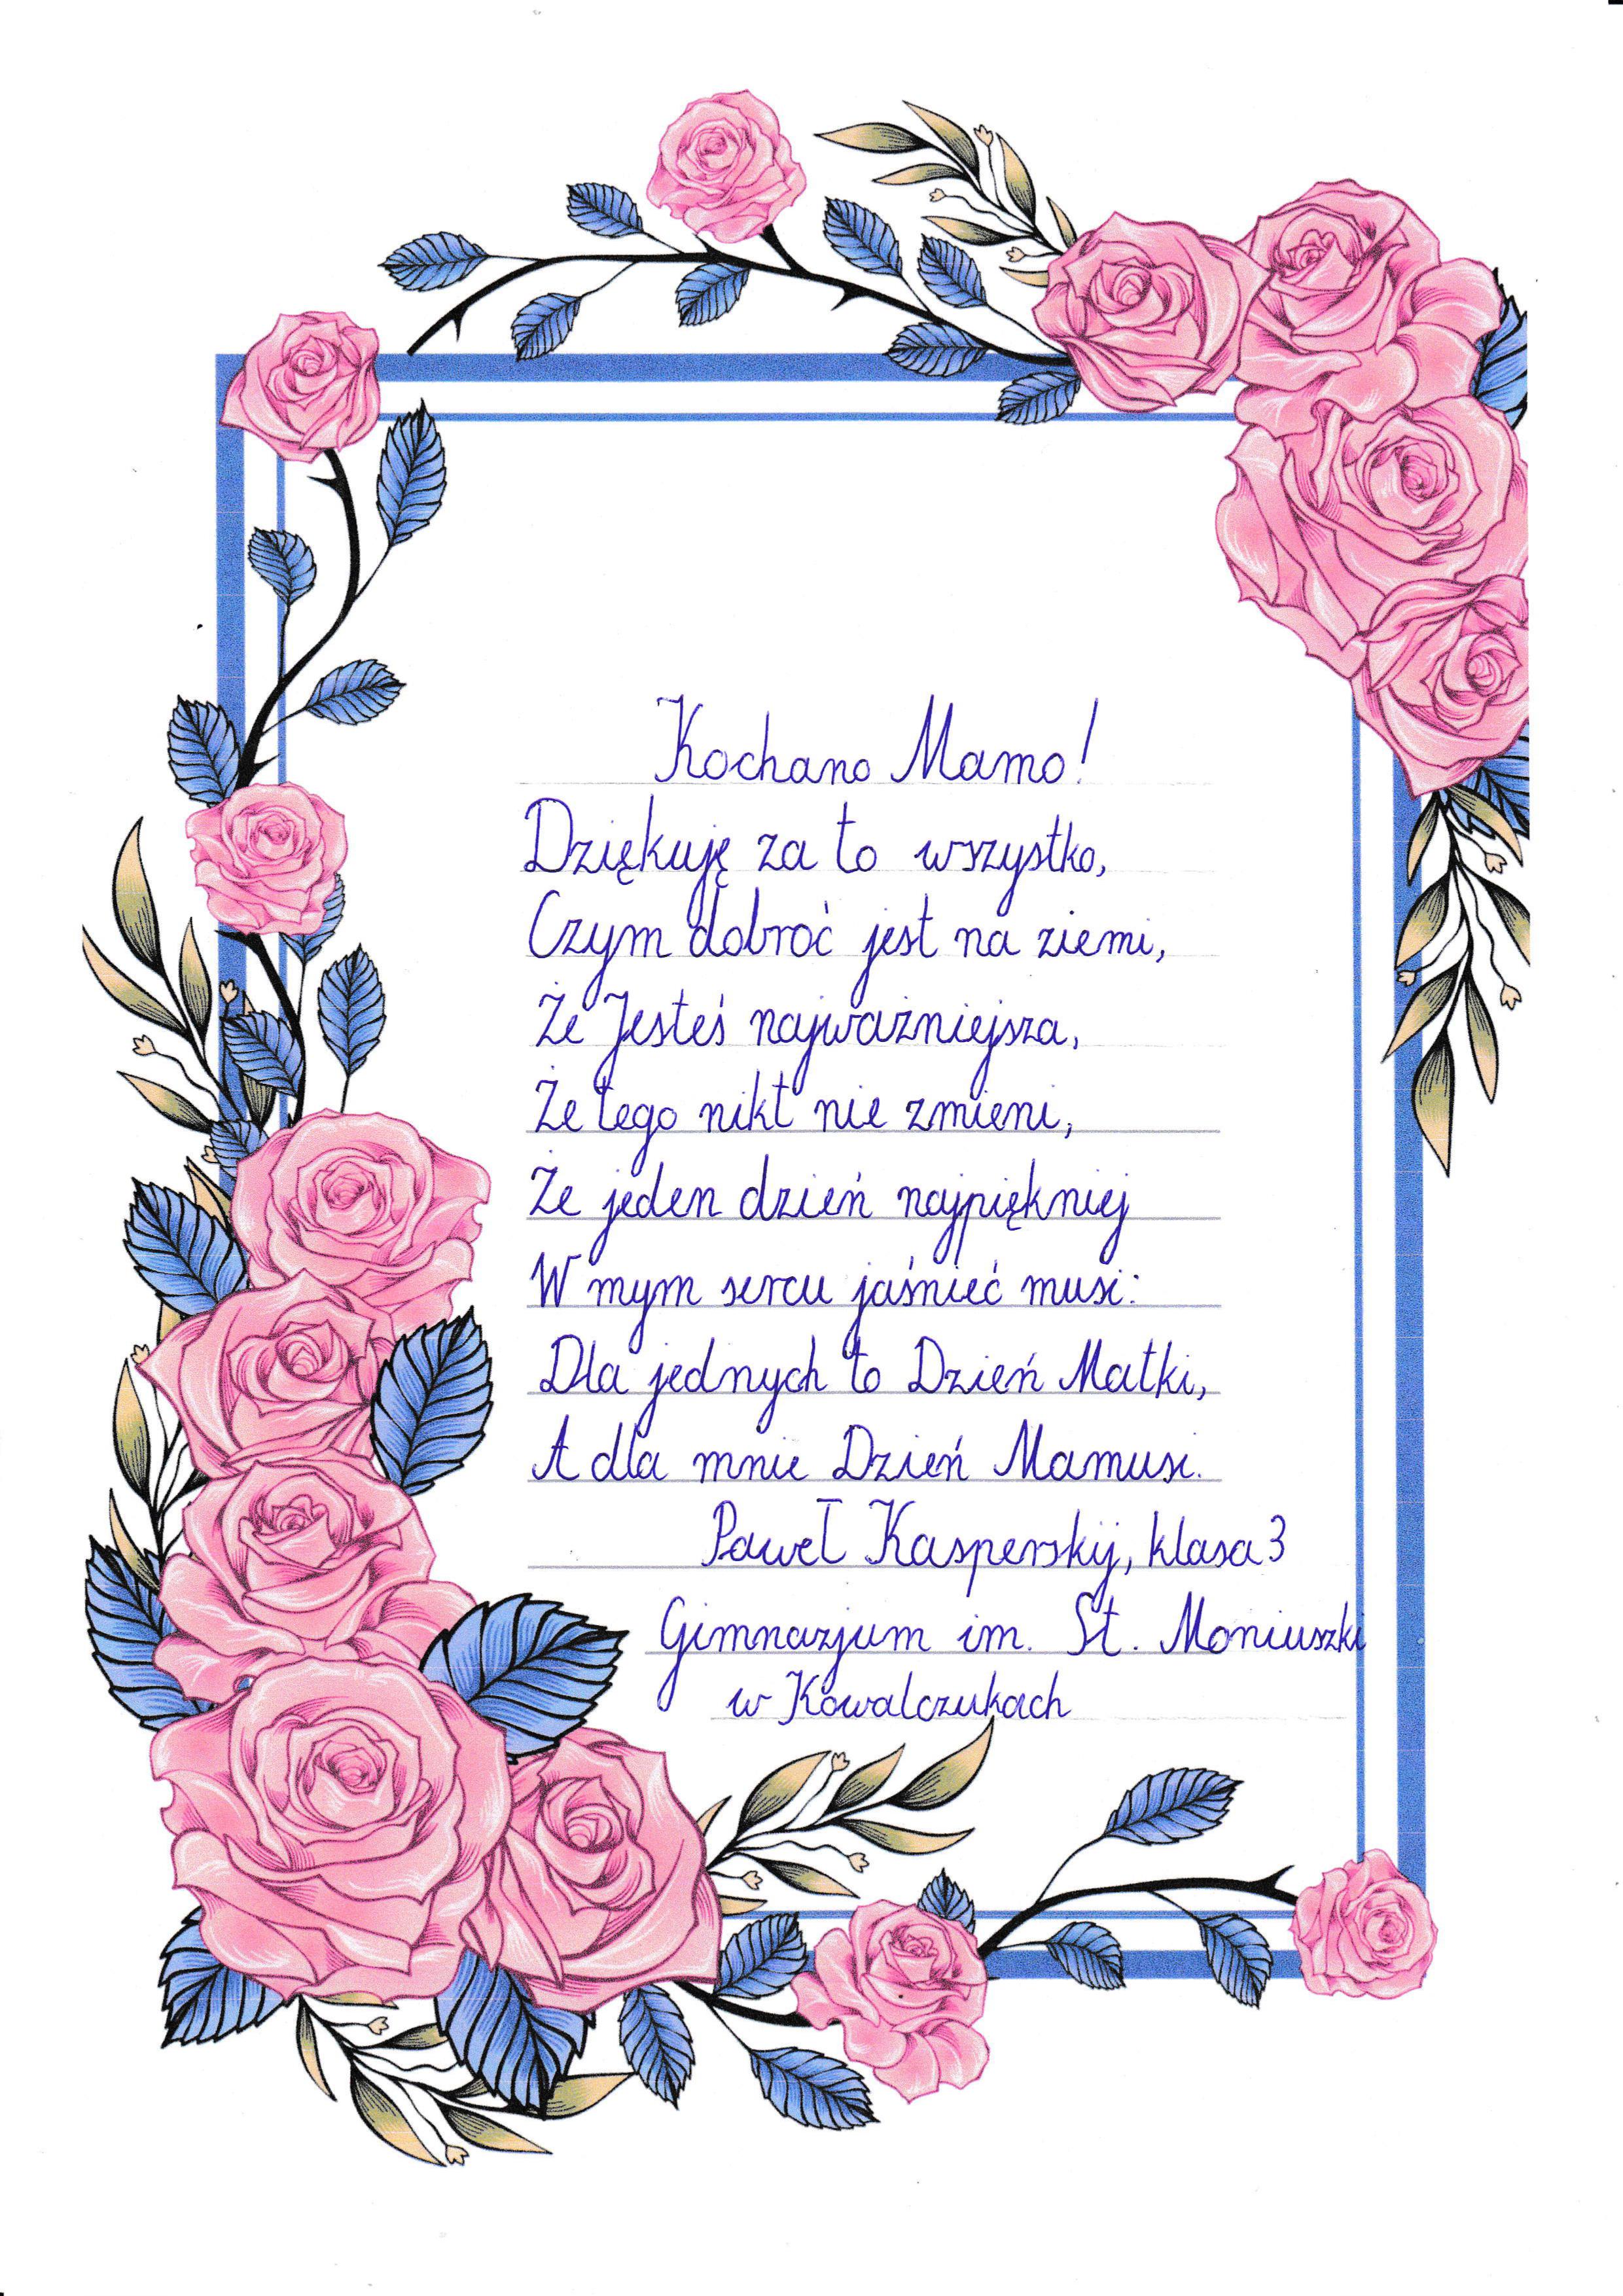 Kochano Mamo!
Dziękuję za to wszystko,
Czym dobroć jest na ziemi,
Że Jesteś najważniejsza,
Że tego nikt nie zmieni,
Że jeden dzień najpiękniej
W mym sercu jaśnieć musi:
Dla jednych to Dzień Matki,
A dla mnie Dzień Mamusi.
Paweł Kasperskij, klasa 3
Gimnazjum im. St. Moniuszki
w Kowalczukach